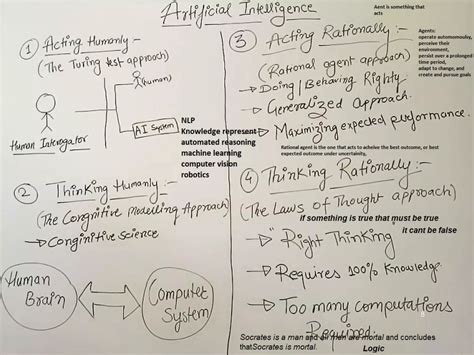 Artificial Intelligence
① Acting Humanly :-
(The Turing test approach)
(human)
AI System
Human Interogator
NLP
Knowledge represent
automated reasoning
machine learning
computer vision
robotics
② Thinking Humanly :-
(The Corgnitive Modelling Approach)
→ Conginitive Science
Human
Brain
Computer
System
Aent is something that
acts
③ Acting Rationally :-
(Rational agent approach)
→ Doing / Behaving Rightly.
→ Generalized Approach.
→ Maximizing expected performance.
Agents:
operate automomoulsy,
perceive their
environment,
persist over a prolonged
time period,
adapt to change, and
create and pursue goals
Rational agent is the one that acts to acheive the best outcome, or best
expected outcome under uncertainity,
④ Thinking Rationally :-
(The Laws of Thought approach)
if something is true that must be true
it cant be false
→ "Right Thinking"
→ Requires 100% Knowledge
→ Too many computations
Required.
Socrates is a man and all men are mortal and concludes
thatSocrates is mortal.
Logic